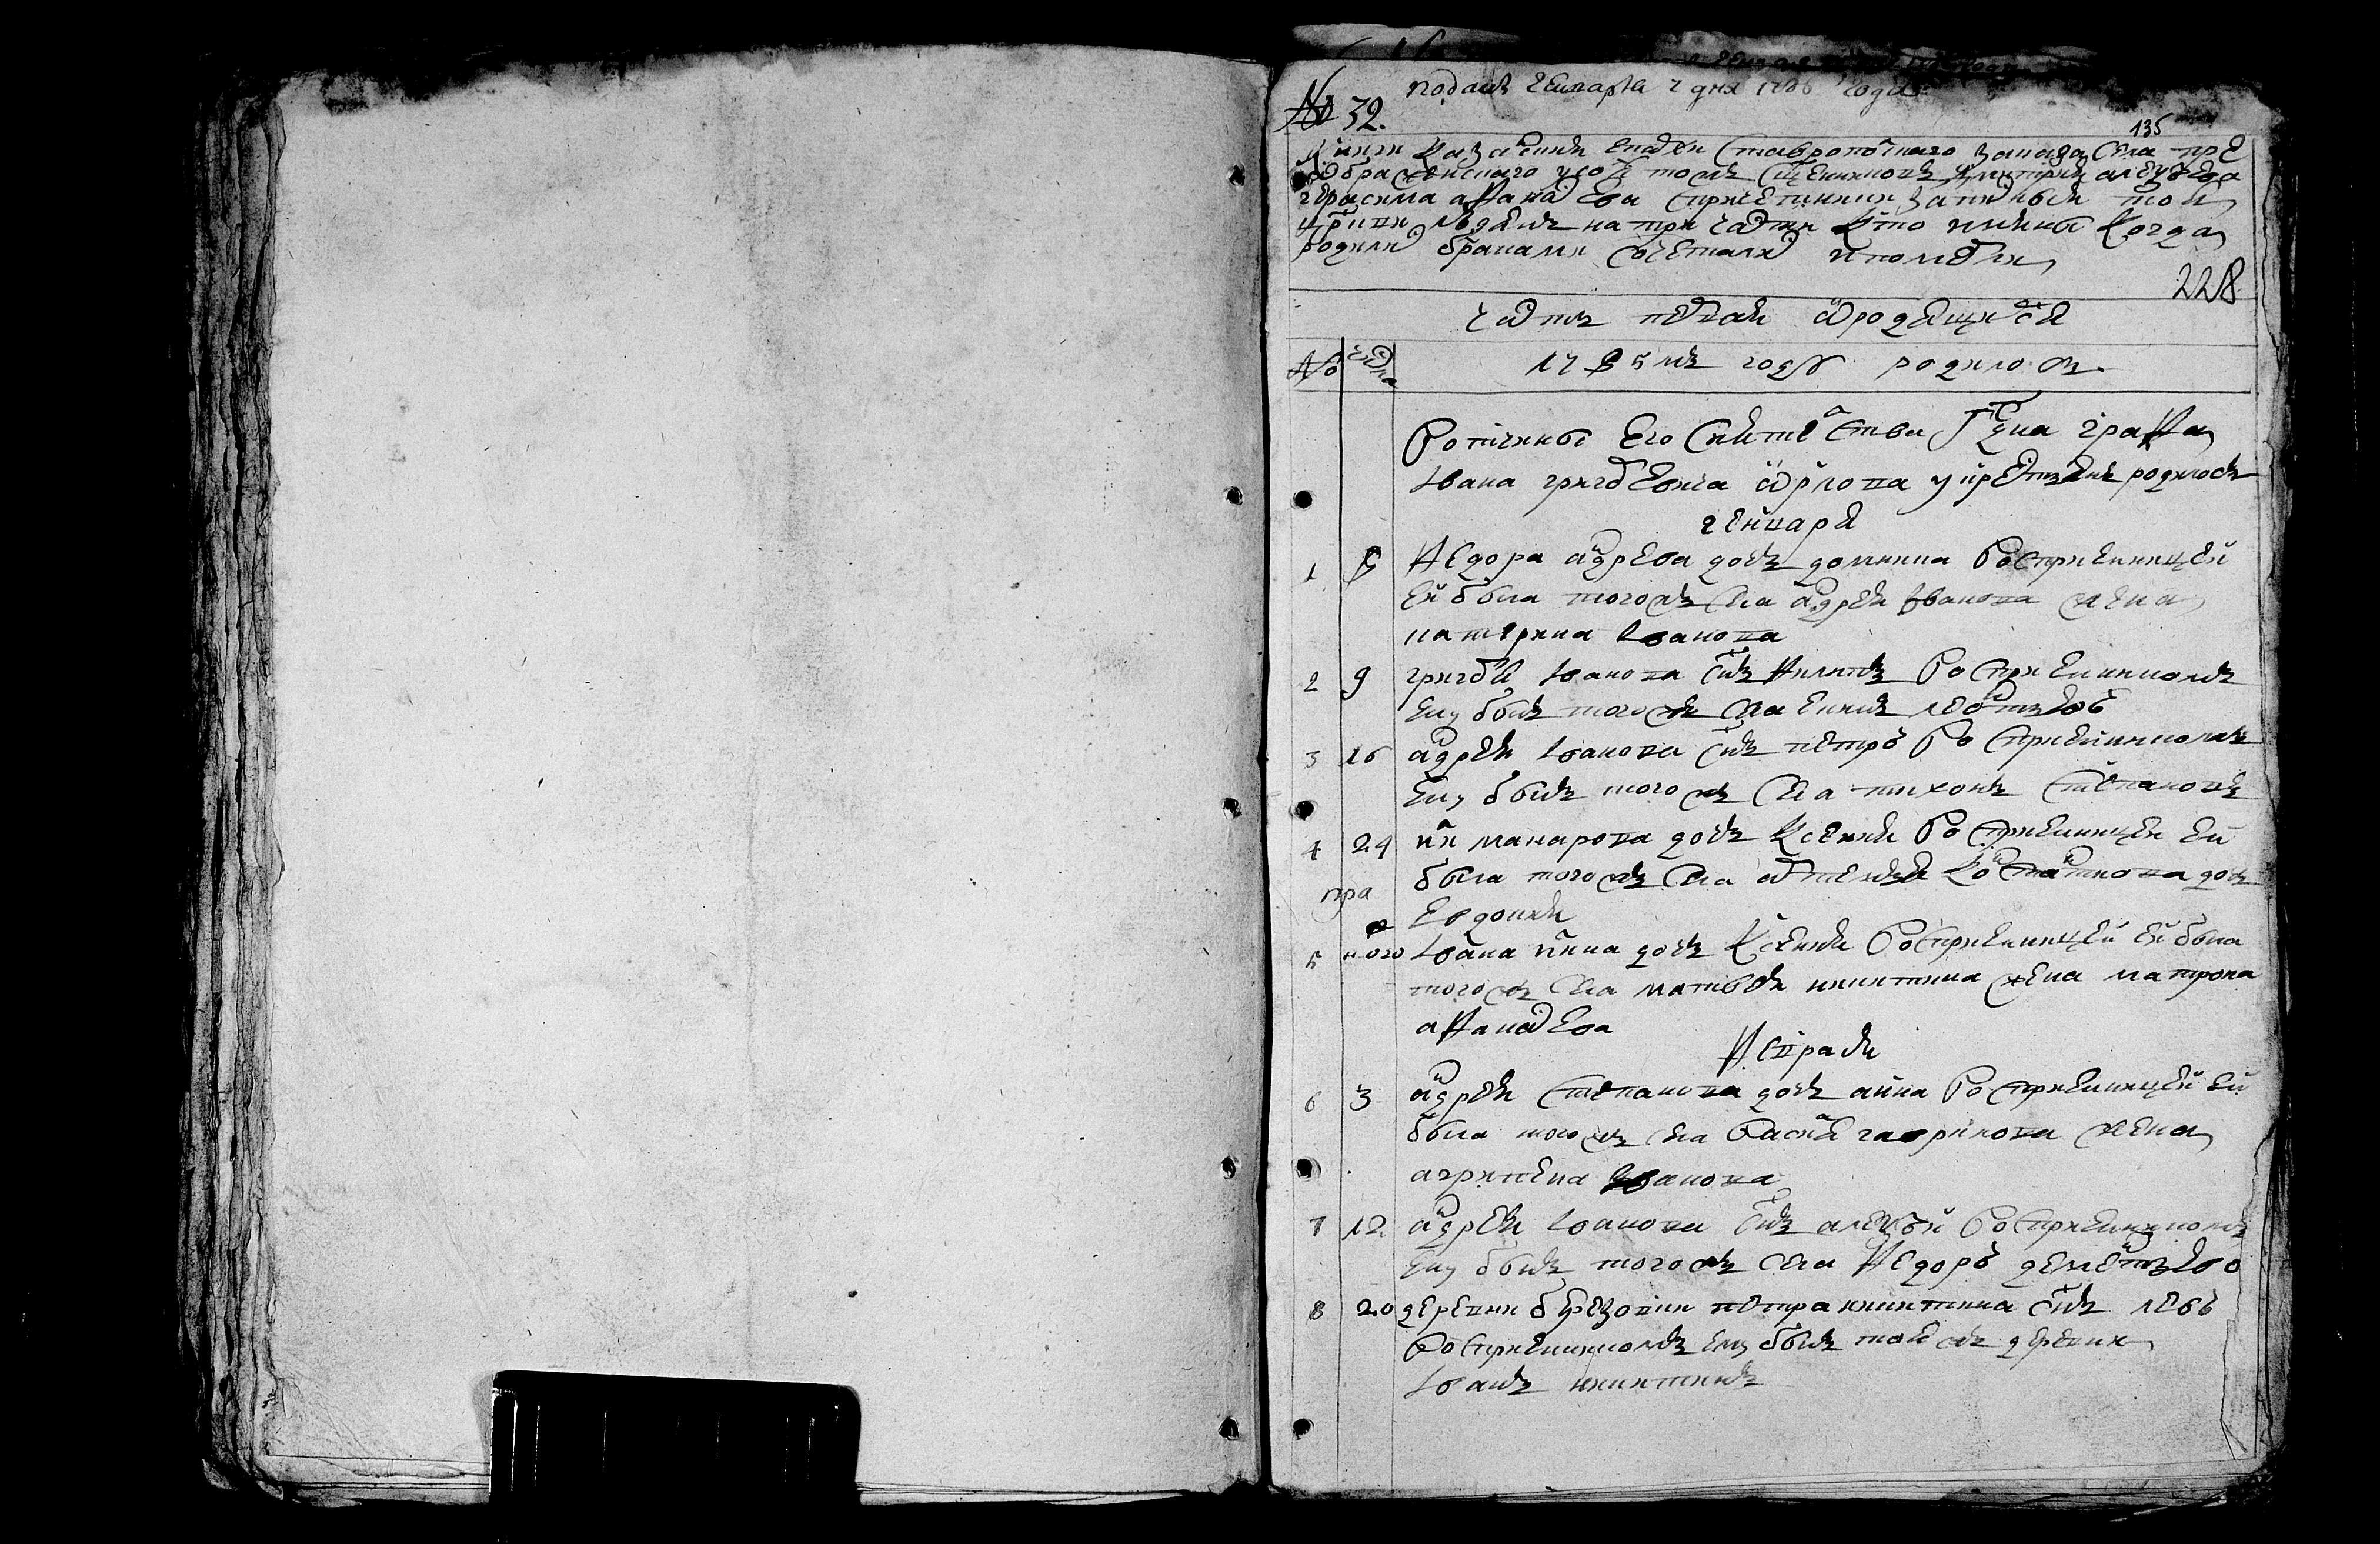 подана Генваря 7 дня 1786 года
№ 32.
135
Книги Казанския епархи Ставропольскаго заказа села Пре
ображенскаго у священников Дмитрия алеѯѣева
герасима афанасьева с причетники записныя той
церкви людямъ на три части кто имяны когда
родились браками сочетались и померли
228
часть первая о родящихся
№ числа 1785мъ году родилось.
Вотчины Его Сиятельства Гсдна графа
Ивана григорьевича ѡрлова у крестьянъ родилось
генваря
1 5 Ѳедора андреева дочь домника восприемницей
ей была того ж села андрея Иванова жена
катерина Иванова
2 9 григорья Иванова снъ Ѳилипъ восприемникомъ
ему былъ того жъ села
3 16 андрея Иванова снъ петръ восприемникомъ
ему былъ того ж села тихонъ степановъ
4 24 макарова дочь Ксения восприемницей ей
была того жъ села дочь
Евдокия
5 Ивана дочь Ксения восприемницей ей была
того ж села матвея никитина жена матрона
афанасьева
Ѳевраля
6 3 андрея степанова дочь анна восприемницей ей
была того ж села Василья гаврилова жена
агрипена Иванова
7 12 андрея Иванова снъ алеѯѣй восприемникомъ
ему былъ того ж села Ѳедоръ дементьевъ
8 20 деревни петра никитина снъ левъ
восприемникомъ ему былъ той ж деревни
Иванъ никитинъ